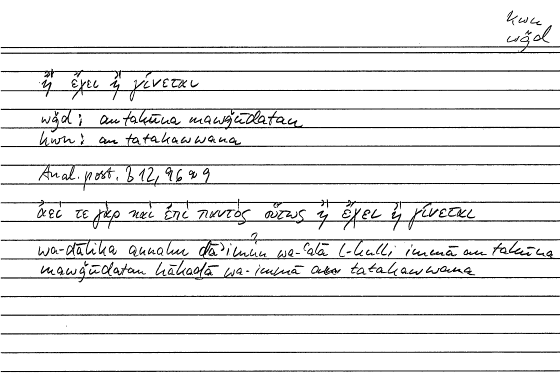 kwn
wǧd
ἢ ἔχει ἢ γίνεται
wǧd : an takūna mawǧūdatan
kwn : an tatakawwana
Anal. post. B 12, 96 a 9
ἀεί τε γὰρ καὶ ἐπὶ παντὸς οὕτως ἢ ἔχει ἢ γίνεται
wa-ḏālika annahu dāʾiman wa-ʿalā l-kulli immā an takūna
mawǧūdatan hākaḏā wa-immā an tatakawwana